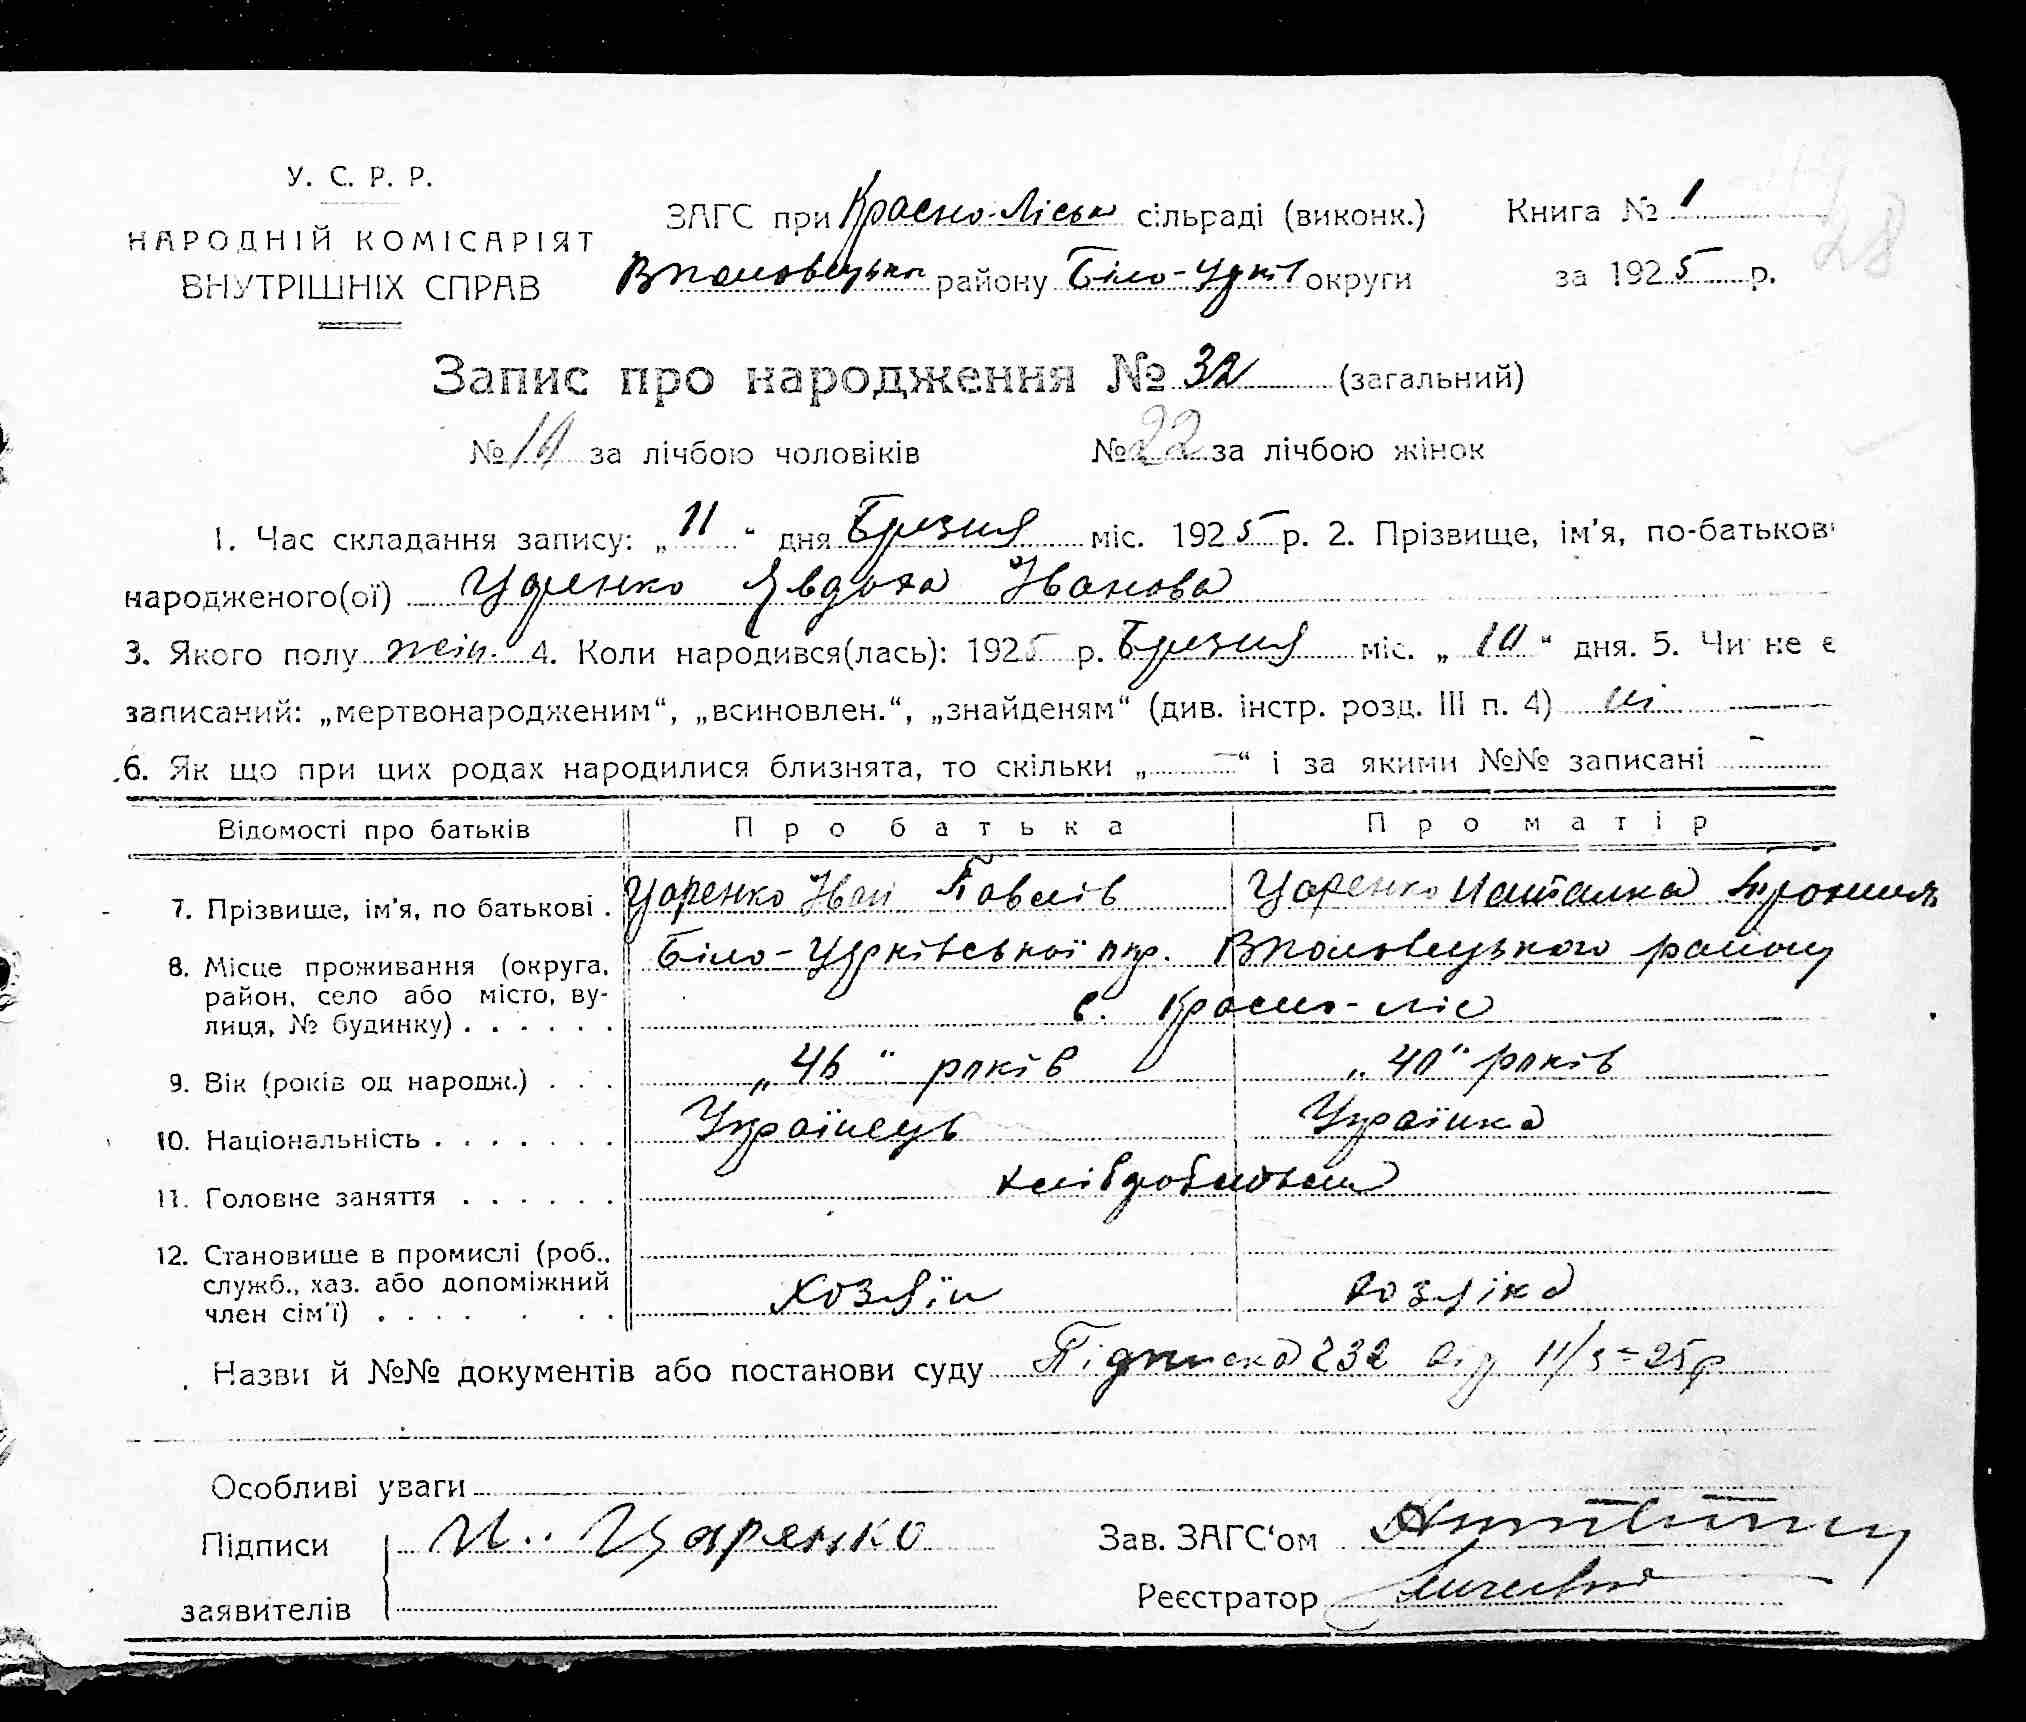 У. С. Р. Р.
НАРОДНІЙ КОМІСАРІЯТ
ВНУТРІШНІХ СПРАВ
ЗАГС при Красно-Ліськ сільраді (виконк.)
Вполовецьк району Біло-Црків округи
Книга № 1
за 1925 р.
28
Запис про народження № 32 (загальний)
№ 10 за лічбою чоловіків № 22 за лічбою жінок
1. Час складання запису: „11“ дня Березня міс. 1925 р. 2. Прізвище, ім'я, по-батьков
народженого(ої) Царенко Явдоха Иванова
3. Якого полу жін. 4. Коли народився(лась): 1925 р. Березня міс. „10“ дня. 5. Чи не є
записаний: „мертвонародженим“, „всиновлен.“, „знайденям“ (див. інстр. розд. III п. 4) ні —
6. Як що при цих родах народилися близнята, то скільки „—“ і за якими №№ записані —
Відомості про батьків Про батька Про матір
7. Прізвище, ім'я, по батькові . Царенко Иван Павлів Царенко Наталка
8. Місце проживання (округа, Біло-Церківської окр. Вполовецького району
район, село або місто, ву- с. Красно-ліс
лиця, № будинку) . . . . . .
9. Вік (років од народж.) . . . „46“ років „40“ років
10. Національність . . . . . . . Українець Українка
11. Головне заняття . . . . . . хлібробством
12. Становище в промислі (роб.,
служб., хаз. або допоміжний Хозяїн хозяіка
член сім'ї) . . . . . . .
Назви й №№ документів або постанови суду Підписка 232 від 11/3-25р
Особливі уваги
Підписи И. Царенко Зав. ЗАГС'ом
заявителів Реєстратор